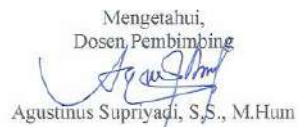 Mengetahui,
Dosen Pembimbing
Agustinus Supriyadi, S.S., M.Hum